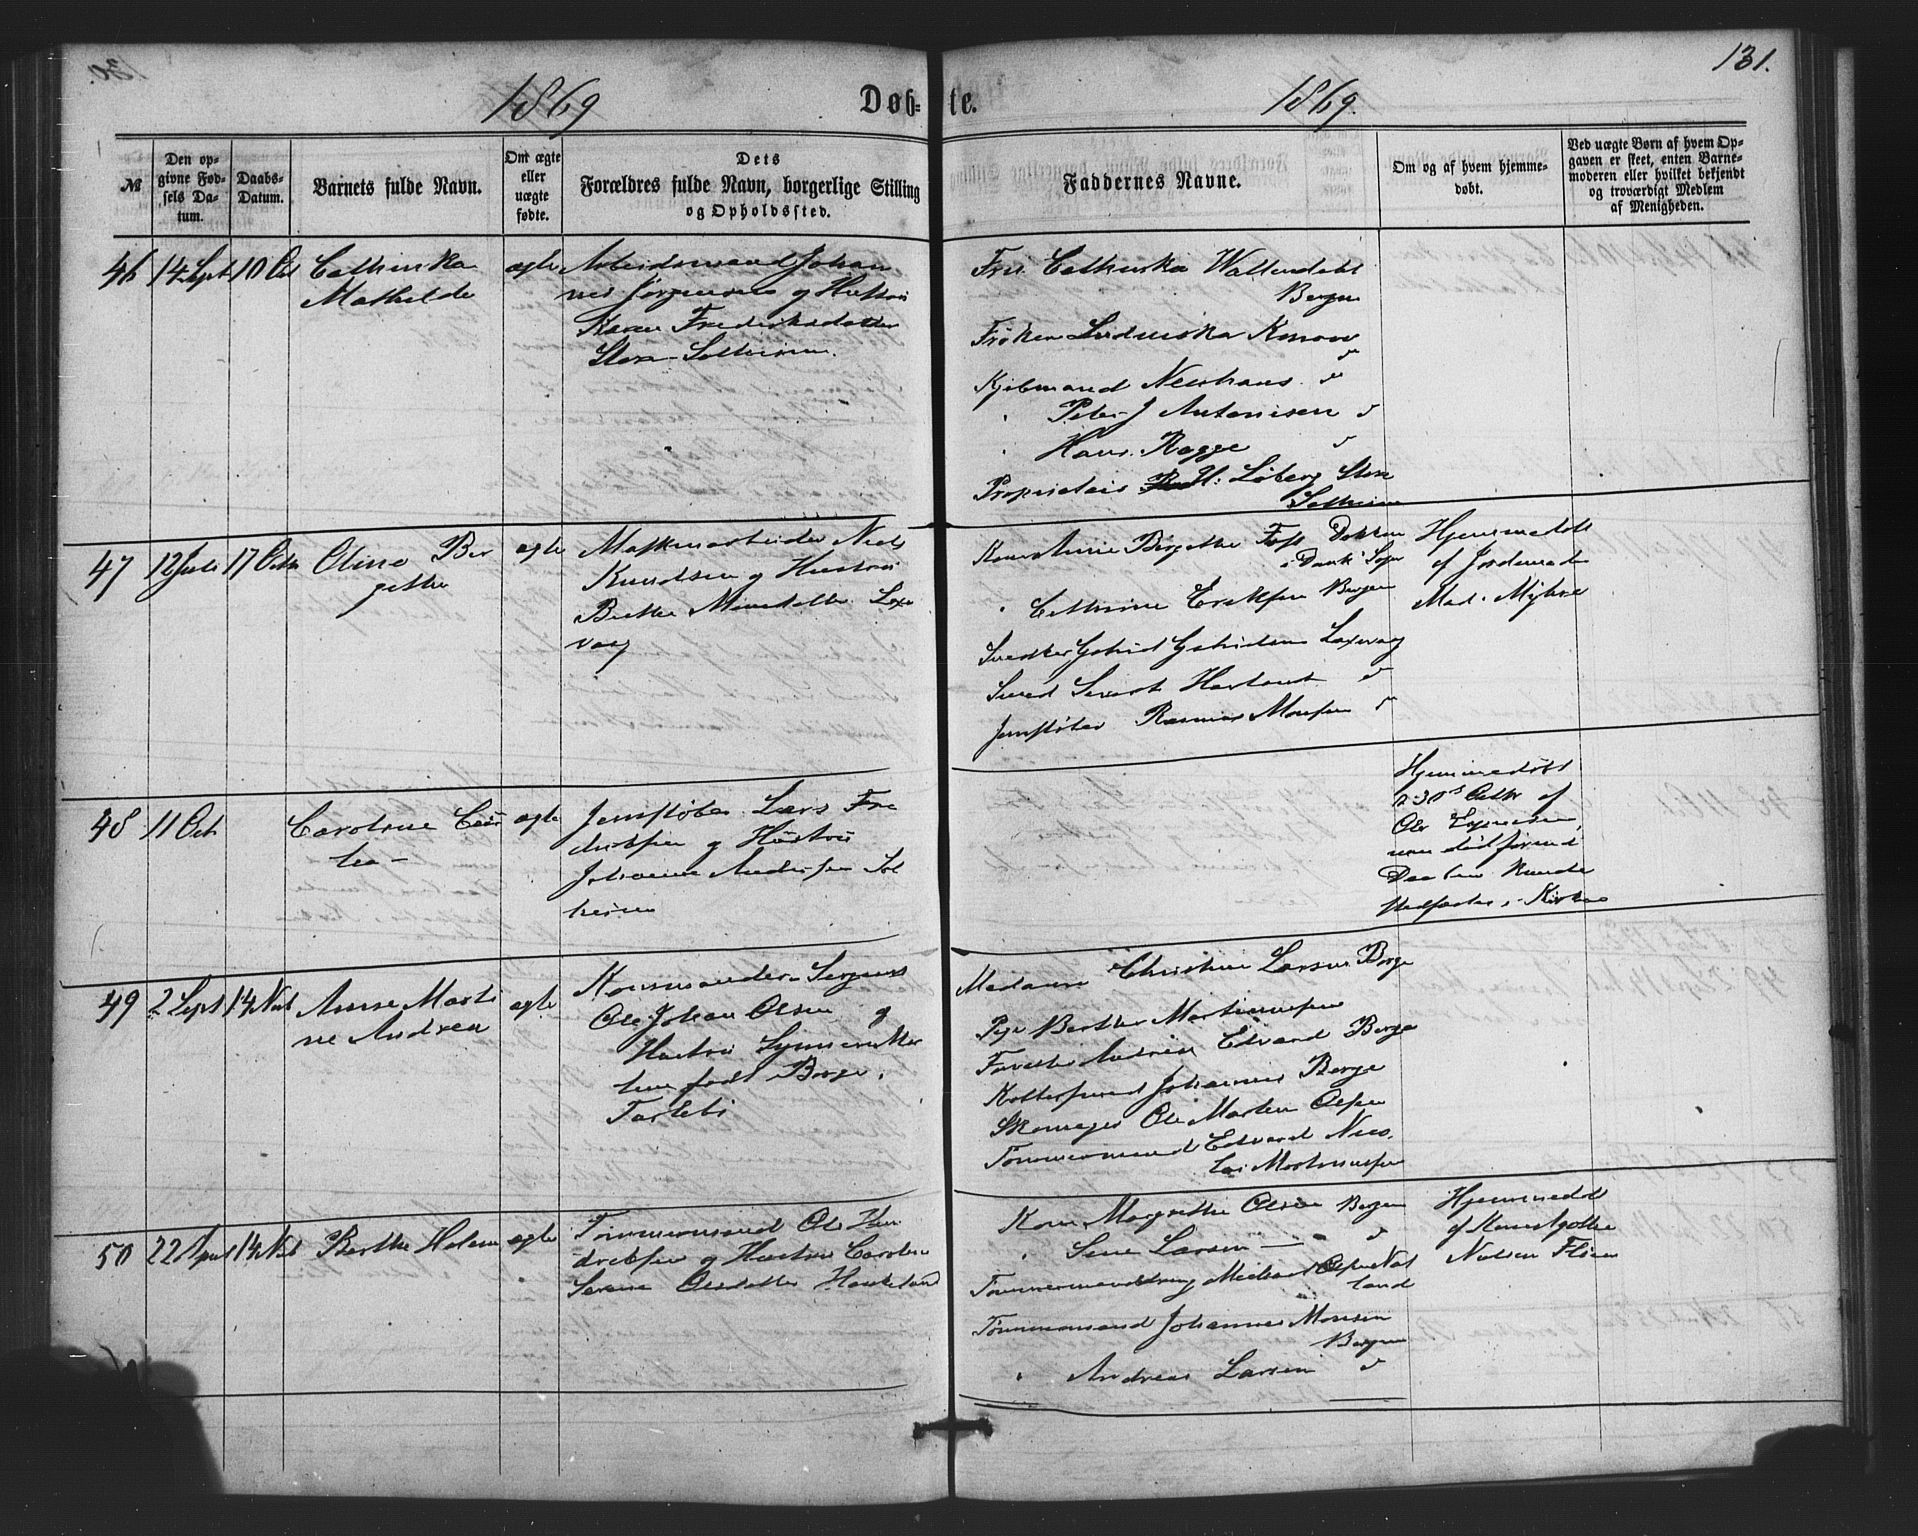 131.
1869
Døb-te.
1869.
№
Den opgivne Fødsels Datum.
Daabs-Datum.
Barnets fulde Navn.
Om ægte eller uægte fødte.
Dets Forældres fulde Navn, borgerlige Stilling og Opholdssted.
Faddernes Navne.
Om og af hvem hjemmedøbt.
Ved uægte Børn af hvem Opgaven er skeet, enten Barnemoderen eller hvilket bekjendt og troværdigt Medlem af Menigheden.
46 14 Sept 10 Oct Cathinka
Mathilde
ægte
Arbeidsmand Johan
nes Jørgensen og Hustru
Karen Frederiksdatter
Store-Solheim
Fru Cathinka Wallendahl
Bergen
Frøken Ludviska Konow
Kjøbmand Neuhaus
Peter J Antonisen
Hans Ragge
Propriétair H: Løberg Store
Solheim
47 12 Juli 17 Octr Oline Ber
gethe
ægte
Maskinarbeider Niels
Knudsen og Hustru
Berthe Monsdatter Laxe
vaag
Kone Anne Birgethe Foss Dokken
i Domk. Sogn
Cathrine Eriksen Bergen
Snedker Gabriel Gabrielsen Laxevaag
Smed Sivert
Jernstøber Rasmus Monsen
Hjemmedøbt
af Jordemoder
Mad. Myhre
48 11 Oct
Caroline
ægte
Jernstøber Lars Fre
driksen og Hustru
Johanne Andersen Sol
heim
Hjemmedøbt
d 30 Octbr af
Ole
men død forend
Daaben kunde
stadfæstes i Kirken
49 2 Sept 14 Nov Anne Marti
ne Andrea
ægte
Kommandeer Sergeant
Ole Johan Olsen og
Hustru
født Borge
Madame Christine Larsen Borge
Pige Berthe Martinussen
Edvard Borge
Johannes Borge
Skomager Ole Martin Olsen
Tømmermand Edvard Nico
lai Martinussen
50 22 April 14 Nov Berthe Helene
ægte
Tømmermand Ole Hen
driksen og Hustru Caroline
Serene Olsdatter Haukeland
Kone Margrethe Olsen Bergen
Sine Larsen
Tømmermanddreng Michael Olsen Nat
land
Tømmermand Johannes Monsen
Bergen
Andreas Larsen
Hjemmedøbt
af Kone Agathe
Nielsen